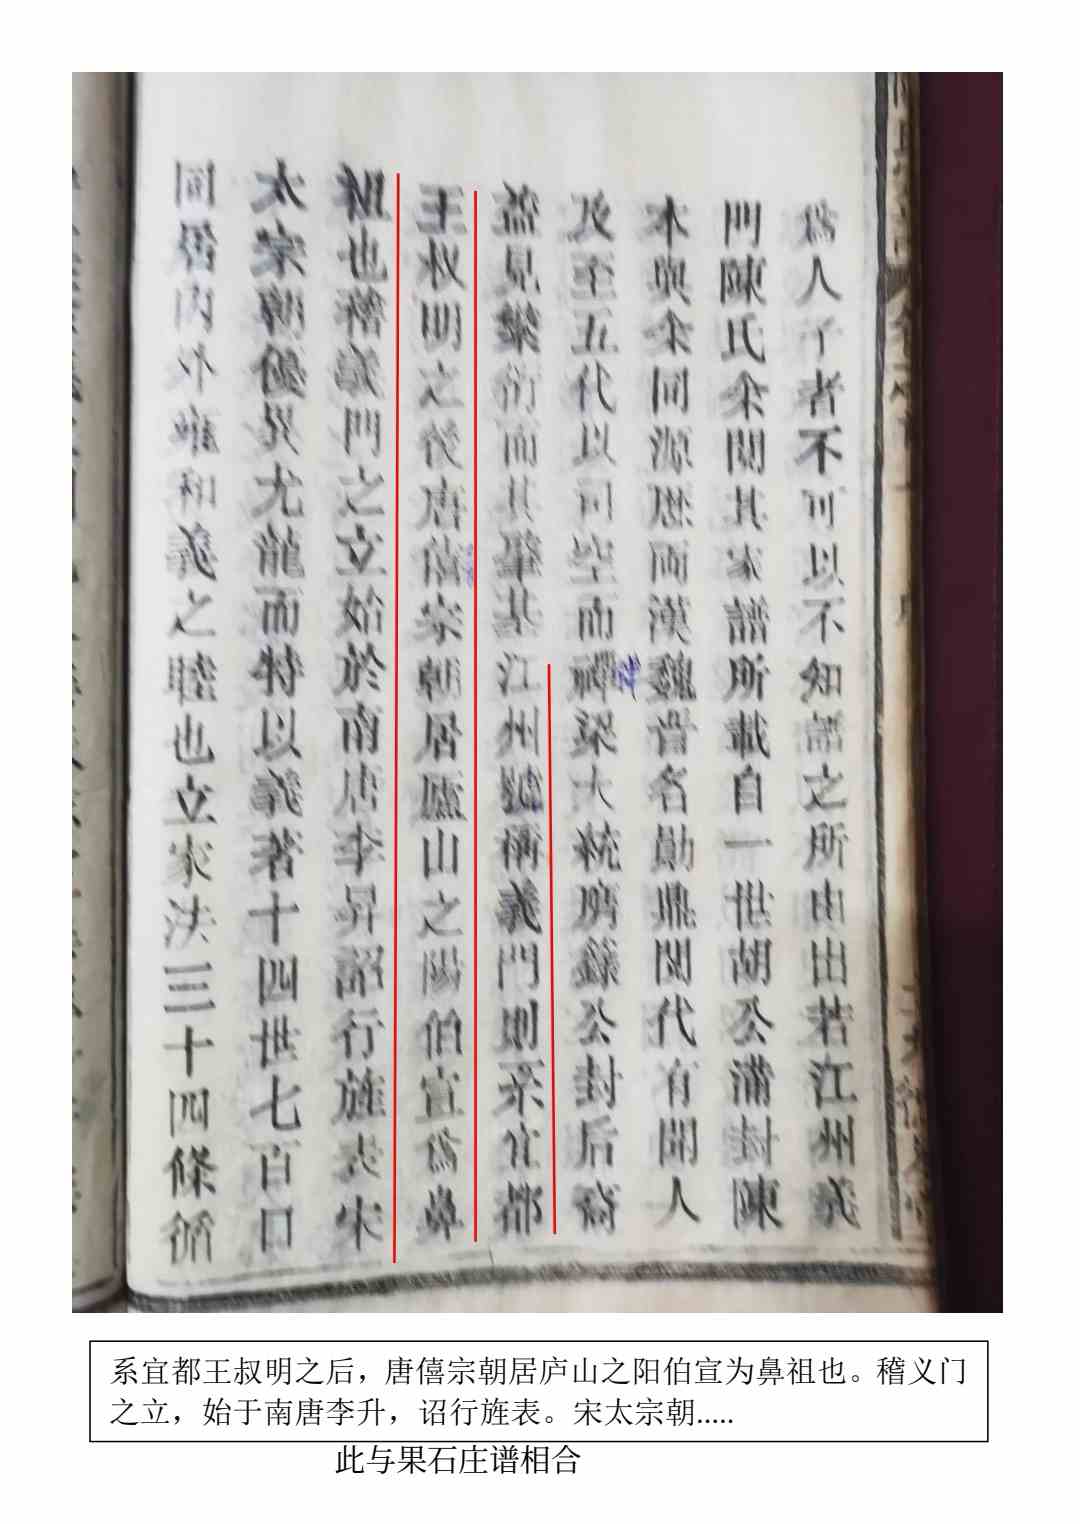 爲人子者不可以不知譜之所由出若江州義
門陳氏余閱其家譜所載自一世胡公滿封陳
本與余同源歷兩漢魏晉名勛鼎閥代有聞人
及至五代以司空而禪梁大統膺籙公封后裔
益見蕃衍而其肇基江州號稱義門則系宜都
王叔明之後唐僖宗朝居廬山之陽伯宣爲鼻
祖也稽義門之立始於南唐李昇詔行旌表宋
太宗朝優異尤龍而特以義著十四世七百口
同居內外雍和義之睦也立家法三十四條循
系宜都王叔明之后，唐僖宗朝居庐山之阳伯宣为鼻祖也。稽义门
之立，始于南唐李升，诏行旌表。宋太宗朝.....
此与果石庄谱相合